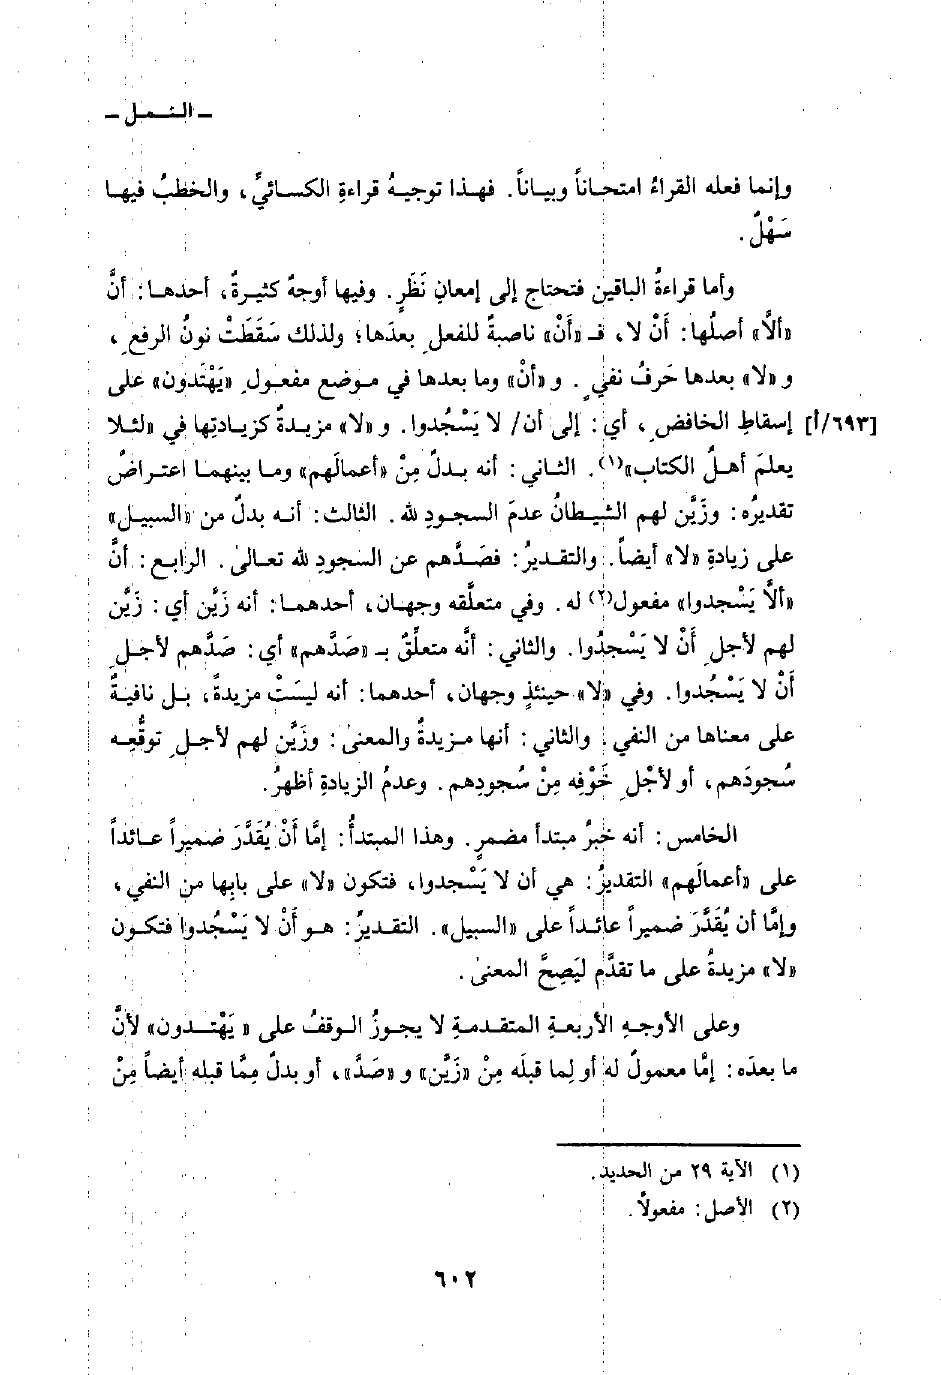 ـ النـمـل ـ
وإنما فعله القراءُ امتحاناً وبياناً. فهذا توجيهُ قراءةِ الكسائيِّ، والخَطْبُ فيها
سَهْلٌ.
وأما قراءةُ الباقين فتحتاج إلى إمعانِ نَظَرٍ. وفيها أوجهٌ كثيرةٌ، أحدها: أنَّ
«ألاَّ» أصلُها: أَنْ لا، فـ «أَنْ» ناصبةٌ للفعلِ بعدَها؛ ولذلك سَقَطَتْ نونُ الرفعِ،
و «لا» بعدها حَرفُ نفيٍ. و «أنْ» وما بعدها في موضع مفعولِ «يَهْتَدون» على
[٦٩٣/أ] إسقاطِ الخافضِ، أي: إلى أن/ لا يَسْجُدوا. و «لا» مزيدةٌ كزيادتِها في «لئلا
يعلمَ أهلُ الكتاب»(١). الثاني: أنه بدلٌ مِنْ «أعمالَهم» وما بينهما اعتراضٌ
تقديرُه: وزَيَّن لهم الشيطانُ عدمَ السجودِ لله. الثالث: أنه بدلٌ من «السبيل»
على زيادةِ «لا» أيضاً. والتقديرُ: فصَدَّهم عن السجودِ لله تعالىٰ. الرابع: أنَّ
«ألاَّ يَسْجدوا» مفعول(٢) له. وفي متعلَّقه وجهان، أحدهما: أنه زَيَّن أي: زَيَّن
لهم لأجلِ أَنْ لا يَسْجُدُوا. والثاني: أنَّه متعلِّقٌ بـ «صَدَّهم» أي: صَدَّهم لأجلِ
أَنْ لا يَسْجُدوا. وفي «لا» حينئذٍ وجهان، أحدهما: أنه ليسَتْ مزيدةً، بل نافيةٌ
على معناها من النفي. والثاني: أنها مزيدةٌ والمعنىٰ: وزَيَّن لهم لأجلِ توقُّعِه
سُجودَهم، أو لأجْلِ خَوْفِه مِنْ سُجودِهم. وعدمُ الزيادةِ أظهرُ.
الخامس: أنه خبرُ مبتدأ مضمرٍ. وهذا المبتدأُ: إمَّا أَنْ يُقَدَّرَ ضميراً عائداً
على «أعمالَهم» التقديرُ: هي أن لا يَسْجدوا، فتكون «لا» على بابِها من النفي،
وإمَّا أن يُقَدَّرَ ضميراً عائداً على «السبيل». التقديرُ: هو أَنْ لا يَسْجُدوا فتكون
«لا» مزيدةً على ما تقدَّم ليَصِحَّ المعنىٰ.
وعلى الأوجهِ الأربعةِ المتقدمةِ لا يجوزُ الوقفُ على «يَهْتدون» لأنَّ
ما بعدَه: إمَّا معمولٌ له أو لِما قبلَه مِنْ «زَيَّن» و «صَدَّ»، أو بدلٌ مِمَّا قبله أيضاً مِنْ
(١) الآية ٢٩ من الحديد.
(٢) الأصل: مفعولاً.
٦٠٢